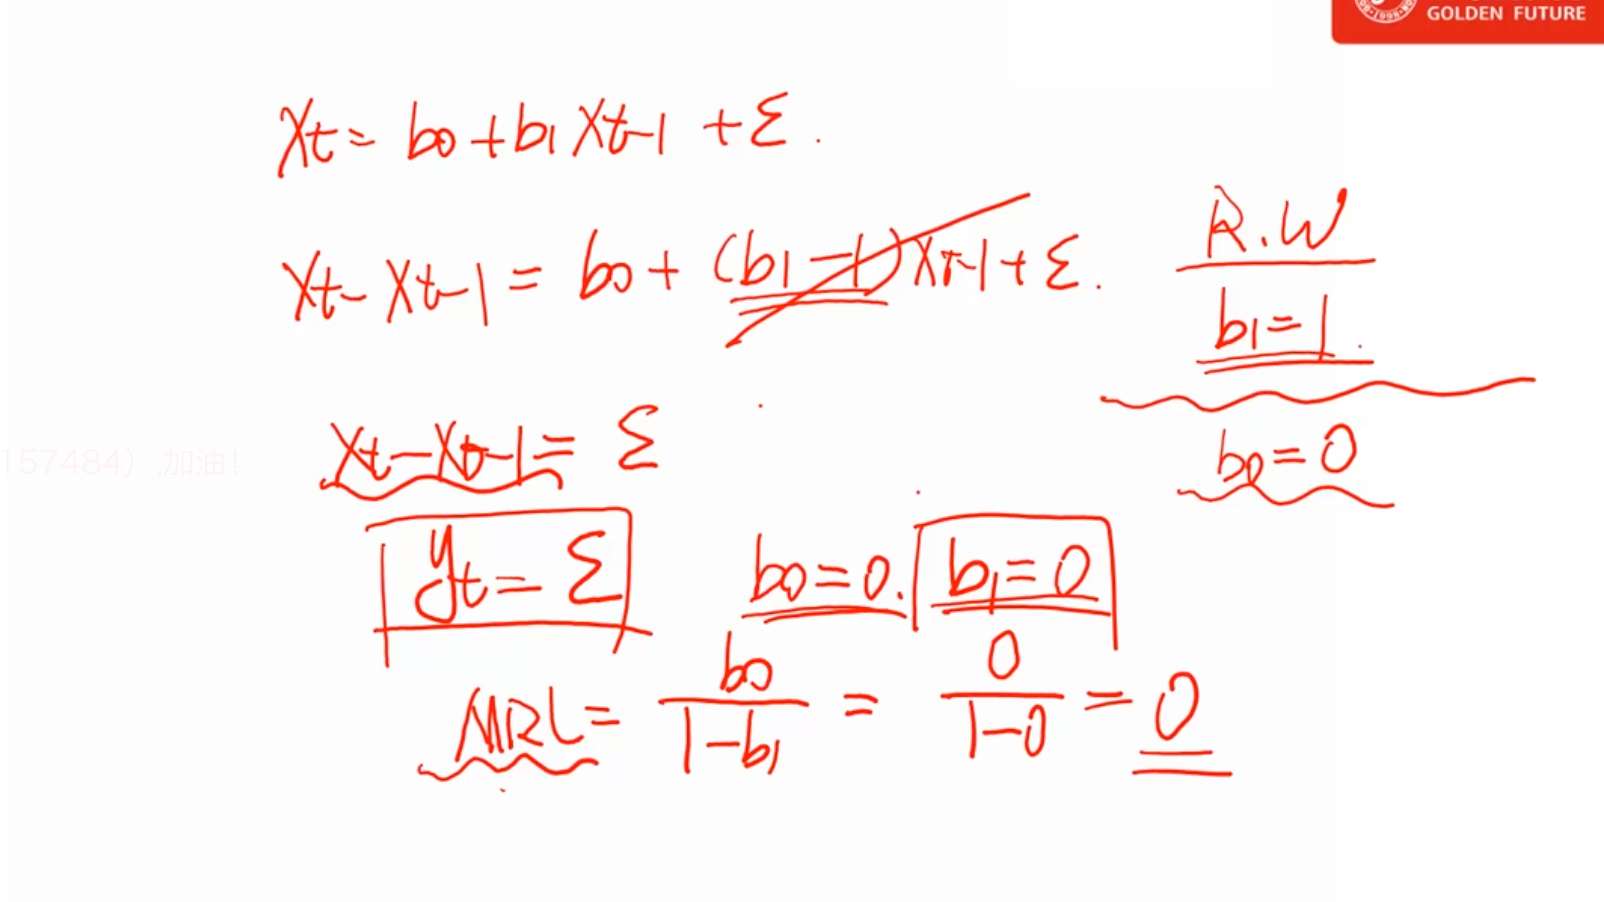 GOLDEN FUTURE
Xt = b0 + b1 Xt-1 + ε.
Xt - Xt-1 = b0 + (b1 - 1) Xt-1 + ε.
R.W
b1 = 1.
Xt - Xt-1 = ε
b0 = 0
157484）加油！
yt = ε
b0 = 0. b1 = 0
MRL = b0/(1-b1) = 0/(1-0) = 0